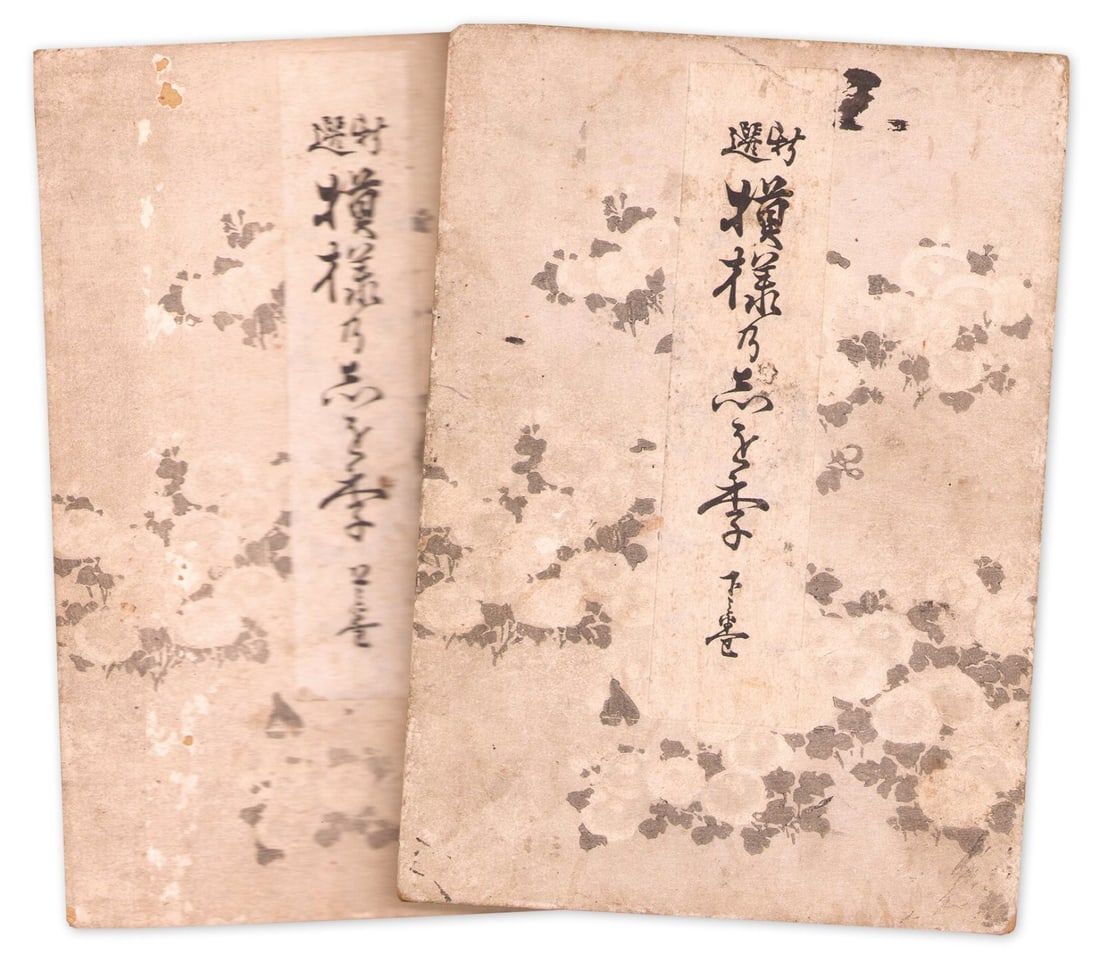 新選
模様乃志を李 上巻
新選
模様乃志を李 下巻